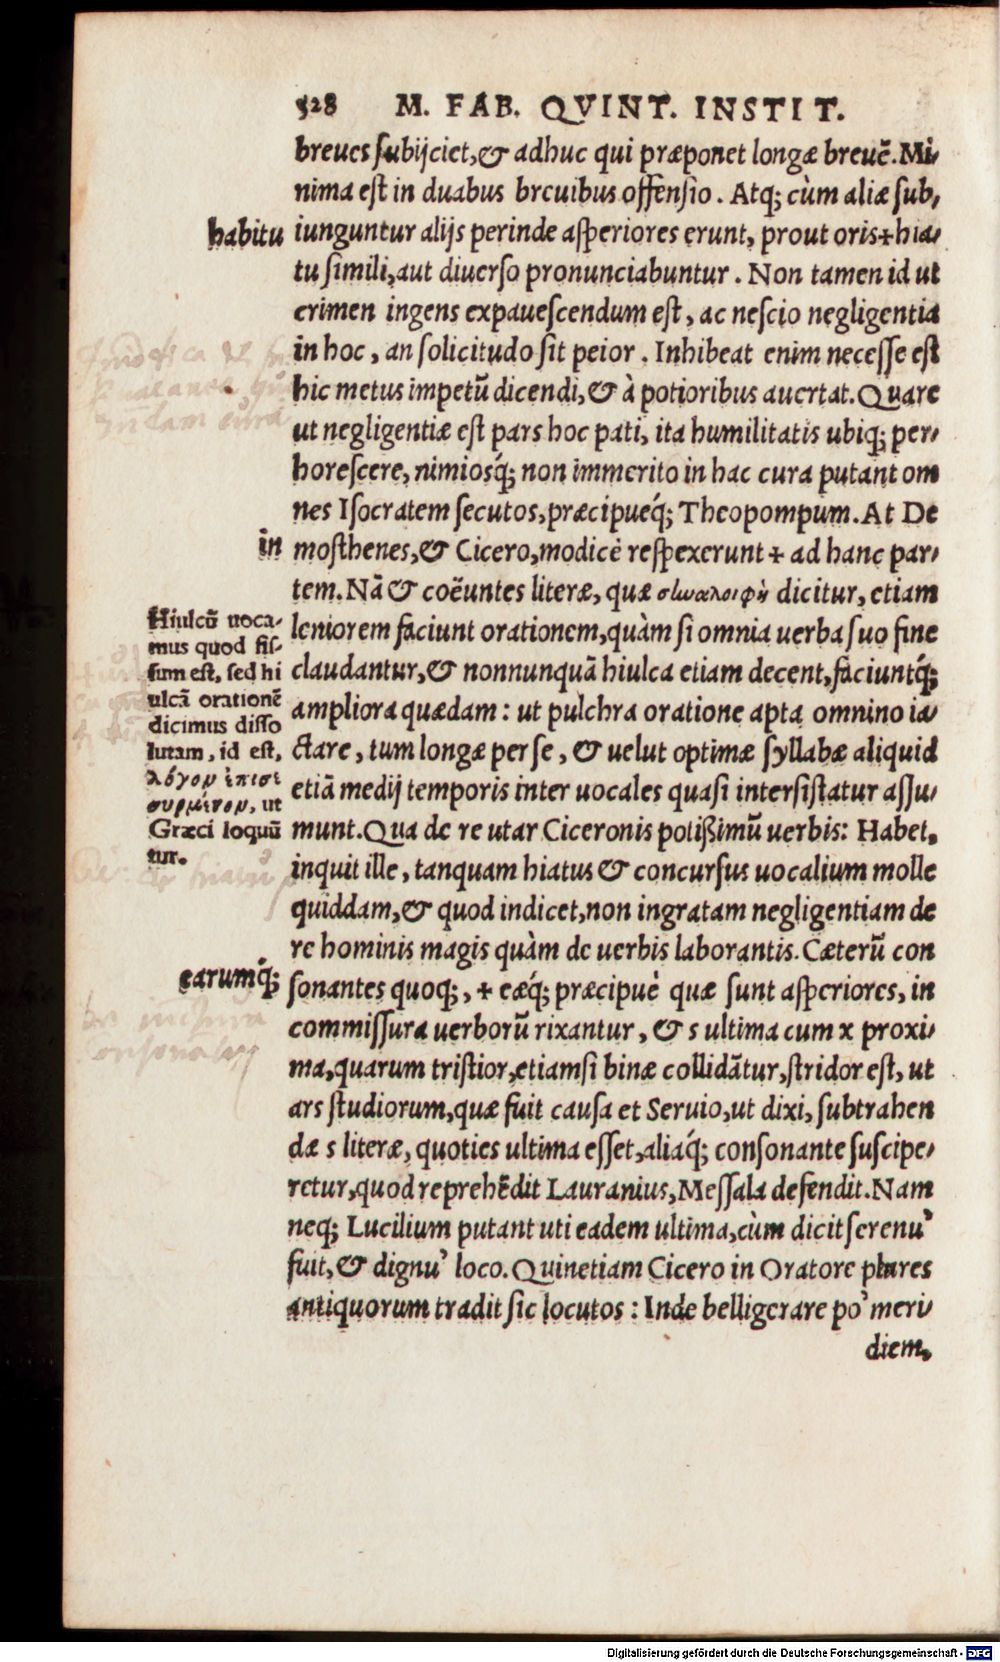 528 M. FAB. QVINT. INSTIT.
breues ſubijciet,& adhuc qui præponet longæ breuē. Mi-
nima eſt in duabus breuibus offenſio. Atq; cùm aliæ ſub-
iunguntur alijs perinde aſperiores erunt, prout oris+hia-
tu ſimili, aut diuerſo pronunciabuntur. Non tamen id ut
crimen ingens expaueſcendum eſt, ac neſcio negligentia
in hoc, an ſolicitudo ſit peior. Inhibeat enim neceſſe eſt
hic metus impetū dicendi,& à potioribus auertat. Quare
ut negligentiæ eſt pars hoc pati, ita humilitatis ubiq; per-
horeſcere, nimiosq́; non immerito in hac cura putant om
nes Iſocratem ſecutos, præcipueq́; Theopompum. At De
moſthenes,& Cicero, modicè reſpexerunt + ad hanc par-
tem. Nā & coëuntes literæ, quæ συναλοιφὴ dicitur, etiam
leniorem faciunt orationem, quàm ſi omnia uerba ſuo fine
claudantur,& nonnunquā hiulca etiam decent, faciuntq́;
ampliora quædam: ut pulchra oratione apta omnino ia-
ctare, tum longæ per ſe, & uelut optimæ ſyllabæ aliquid
etiā medij temporis inter uocales quaſi interſiſtatur aſſu-
munt. Qua de re utar Ciceronis potißimū uerbis: Habet,
inquit ille, tanquam hiatus & concurſus uocalium molle
quiddam,& quod indicet, non ingratam negligentiam de
re hominis magis quàm de uerbis laborantis. Cæterū con
ſonantes quoq;, + eæq́; præcipuè quæ ſunt aſperiores, in
commiſſura uerborū rixantur, & s ultima cum x proxi-
ma, quarum triſtior, etiamſi binæ collidātur, ſtridor eſt, ut
ars ſtudiorum, quæ fuit cauſa et Seruio, ut dixi, ſubtrahen
dæ s literæ, quoties ultima eſſet, aliaq́; conſonante ſuſcipe-
retur, quod reprehēdit Lauranius, Meſſala defendit. Nam
neq; Lucilium putant uti eadem ultima, cùm dicit ſerenu'
fuit,& dignu' loco. Quinetiam Cicero in Oratore plures
antiquorum tradit ſic locutos: Inde belligerare po' meri-
diem,
habitu
in
Hiulcū uoca-
mus quod fiſ-
ſum eſt, ſed hi
ulcā orationē
dicimus diſſo
lutam, id eſt,
λόγον ἐπισε
συρμένον, ut
Græci loquū
tur.
earumq́;
Digitalisierung gefördert durch die Deutsche Forschungsgemeinschaft - DFG